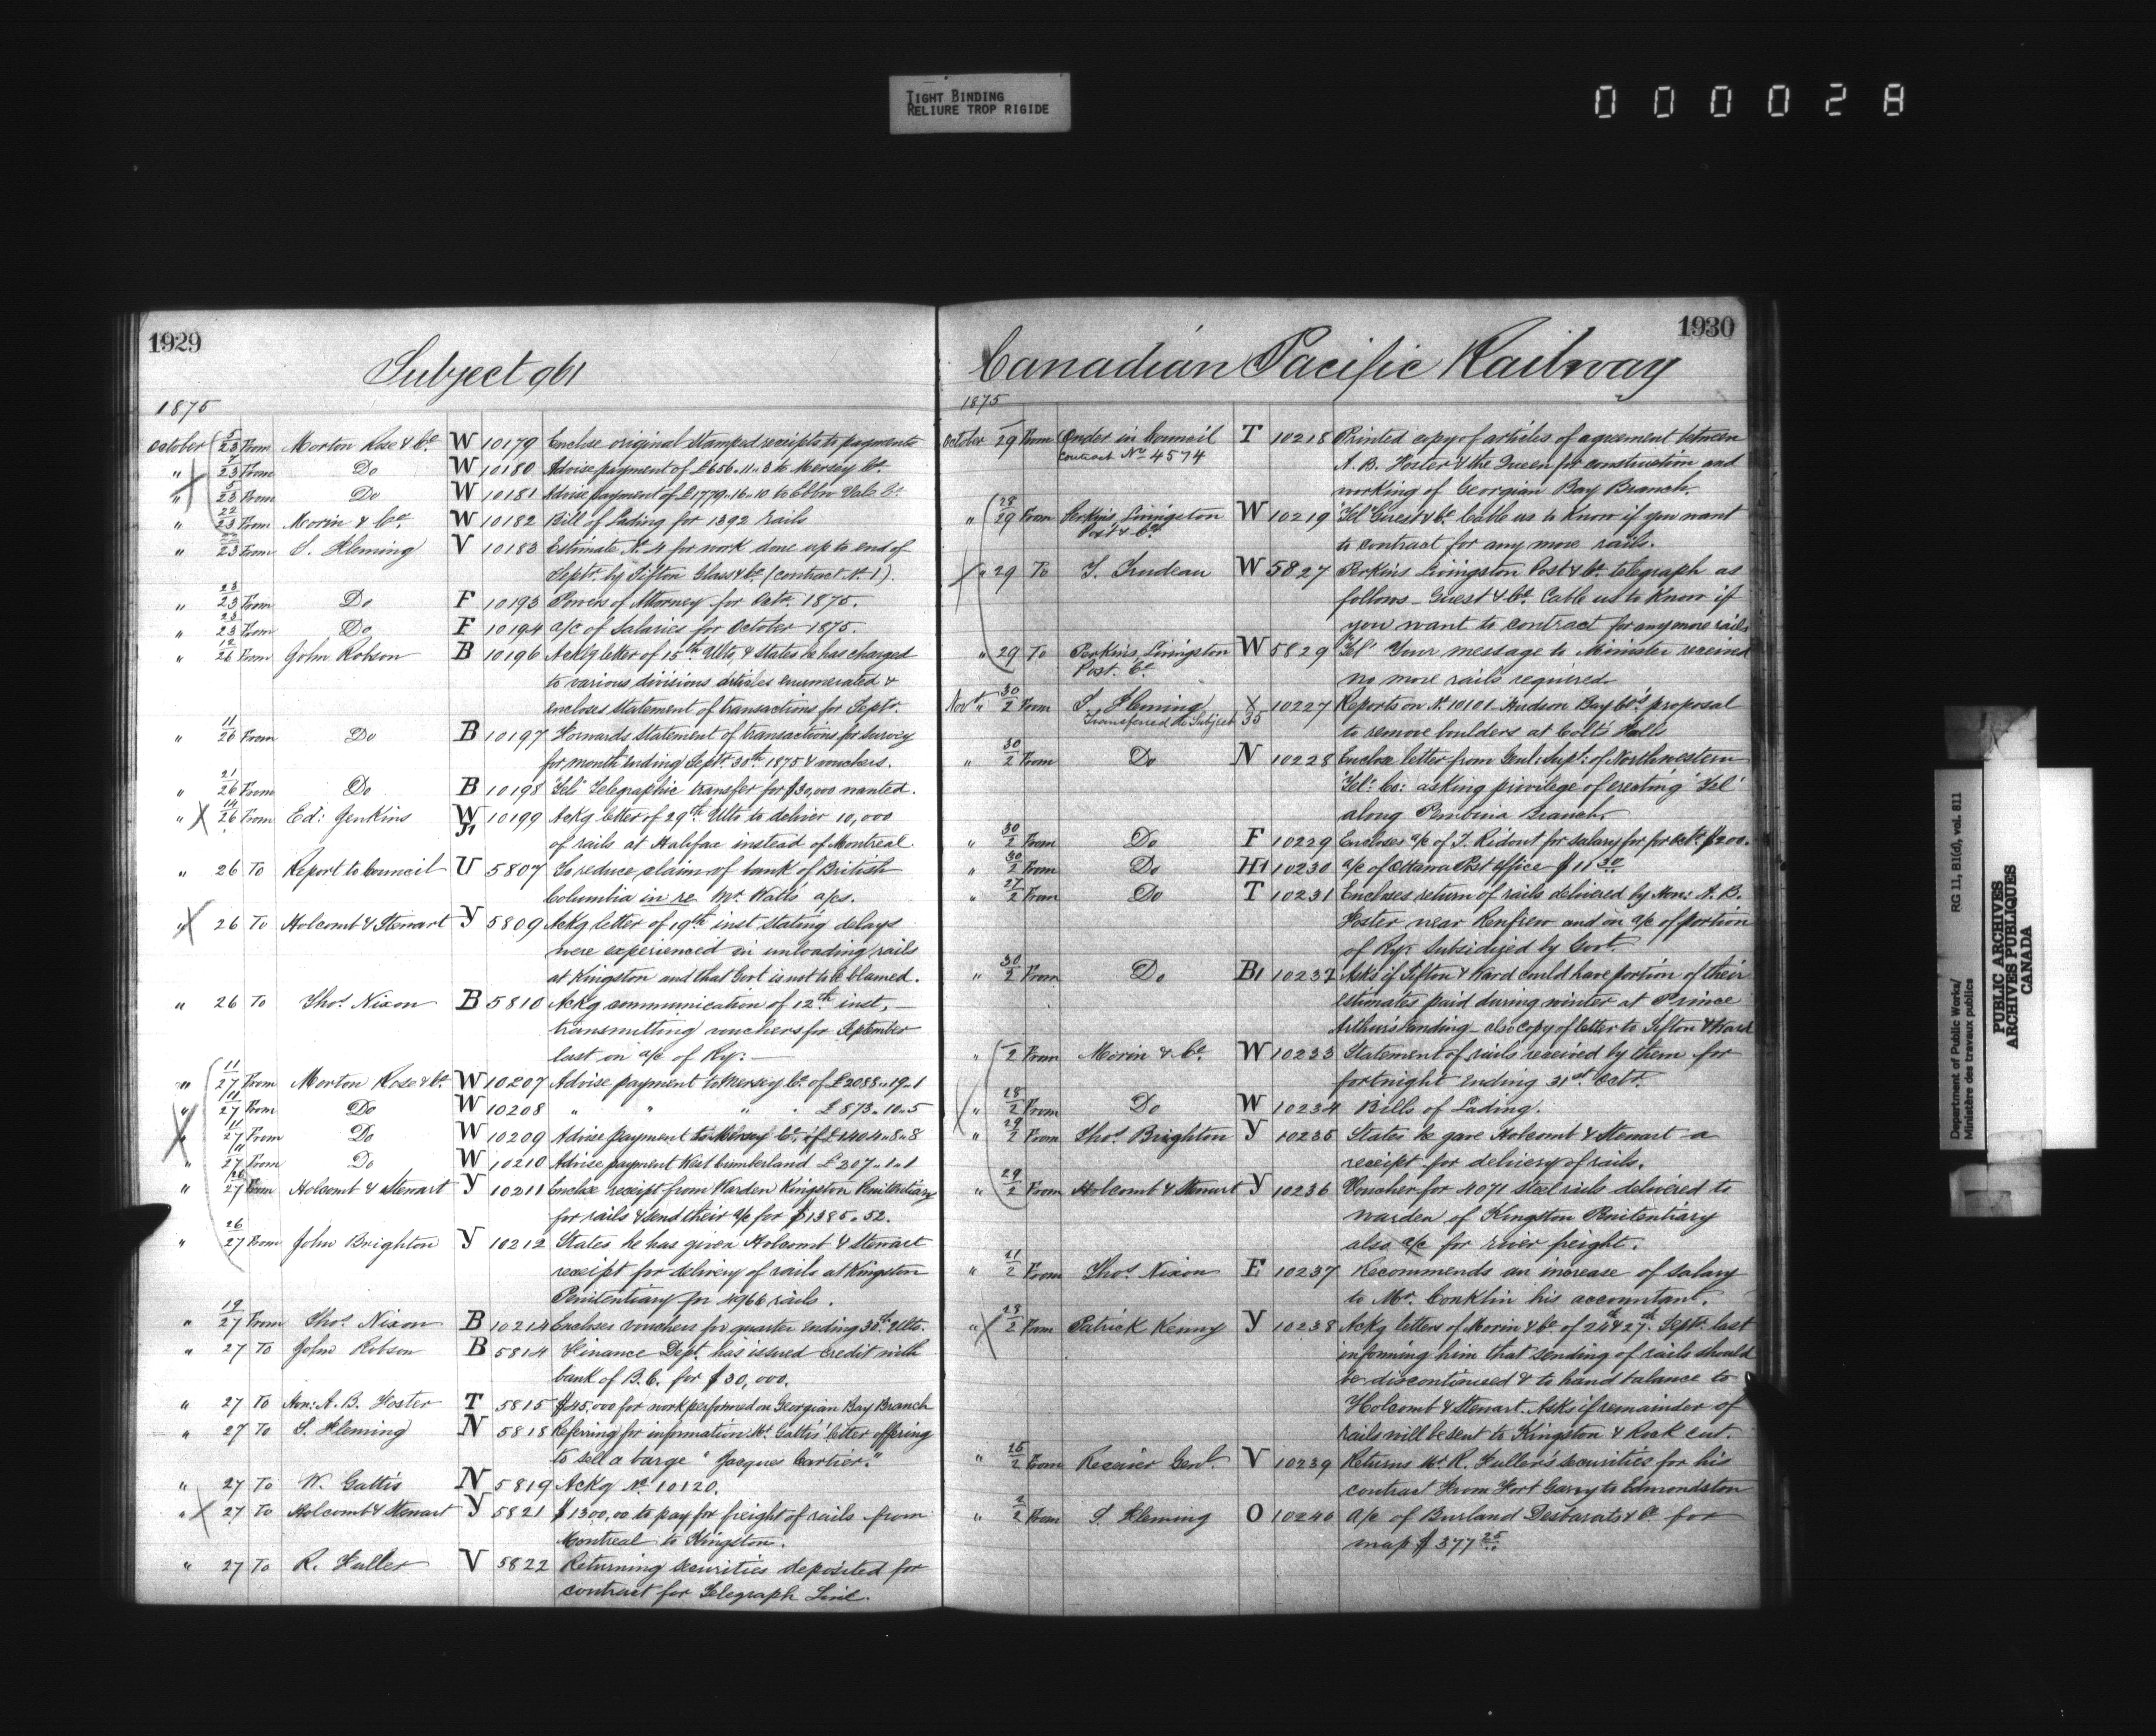 TIGHT BINDING
RELIURE TROP RIGIDE
000028
1929
Subject 961
1875
October 5/23 From Morton Rose & Co. W 10179 Enclose original stamped receipts to payments
" 7/23 From Do W 10180 Advise payment of £656.11.3 to Mersey Co.
" 5/23 From Do W 10181 Advise payment of £1779.16.10 to Ebbw Vale Co.
" 22/23 From Morin & Co. W 10182 Bill of Lading for 1392 rails
" 23 From S. Fleming V 10183 Estimate No. 4 for work done up to end of
Septr. by Sifton Glass & Co. (contract No. 1).
" 23/23 From Do F 10193 Powers of Attorney for Octr. 1875.
" 23/23 From Do F 10194 a/c of Salaries for October 1875.
" 12/26 From John Robson B 10196 Ackg letter of 15th Ulto, & States he has charged
to various divisions articles enumerated &
encloses statement of transactions for Septr.
" 11/26 From Do B 10197 Forwards Statement of transactions for Survey
for month ending Septr. 30th 1875 & vouchers.
" 21/26 From Do B 10198 "Tel" Telegraphic transfer for $30,000 wanted.
" 14/26 From Ed: Jenkins W J1 10199 Ackg letter of 29th Ulto to deliver 10,000
of rails at Halifax instead of Montreal.
" 26 To Report to Council U 5807 To reduce claim of bank of British
Columbia in re Mr. Watts a/cs.
" 26 To Holcomb & Stewart Y 5809 Ackg letter of 19th inst stating delays
were experienced in unloading rails
at Kingston and that Govt is not to be blamed.
" 26 To Thos. Nixon B 5810 Ackg communication of 12th inst, —
transmitting vouchers for September
last on a/c of Ry: —
" 11/27 From Morton Rose & Co. W 10207 Advise payment to Mersey Co. of £2088.19.1
" 11/27 From Do W 10208 " " " " £873.10.5
" 11/27 From Do W 10209 Advise payment to Mersey Co. of £1404.8.8
" 11/27 From Do W 10210 Advise payment West Cumberland £207.1.1
" 26/27 From Holcomb & Stewart Y 10211 Enclose receipt from Warden Kingston Penitentiary
for rails & send their a/c for $1385.52.
" 26/27 From John Brighton Y 10212 States he has given Holcomb & Stewart
receipt for delivery of rails at Kingston
Penitentiary for 4966 rails.
" 19/27 From Thos. Nixon B 10214 Encloses vouchers for quarter ending 30th Ulto.
" 27 To John Robson B 5814 Finance Dept. has issued credit with
bank of B.C. for $30,000.
" 27 To Hon: A. B. Foster T 5815 $45,000 for work performed on Georgian Bay Branch
" 27 To S. Fleming N 5818 Referring for information Mr. Gattis' letter offering
to sell a barge "Jacques Cartier."
" 27 To W. Gattis N 5819 Ackg No. 10120.
" 27 To Holcomb & Stewart Y 5821 $1300,00 to pay for freight of rails from
Montreal to Kingston.
" 27 To R. Fuller V 5822 Returning securities deposited for
contract for Telegraph Line.
1930
Canadian Pacific Railway
1875
October 29 From Order in Council T 10218 Printed copy of articles of agreement between
Contract No. 4574
A. B. Foster & the Queen for construction and
working of Georgian Bay Branch.
" 28/29 From Perkins Livingston W 10219 "Tel" Guest & Co. Cable us to Know if you want
Post & Co.
to contract for any more rails.
" 29 To T. Trudeau W 5827 Perkins Livingston Post & Co. telegraph as
follows - Guest & Co. Cable us to Know if
you want to contract for any more rails
" 29 To Perkins Livingston W 5829 "Tel" Your message to Minister received
Post. Co.
no more rails required
Nov " 30/2 From S. Fleming X 10227 Reports on No. 10101 Hudson Bay Co's proposal
Transferred to Subject 35
to remove boulders at Colts Falls
" 30/2 From Do N 10228 Enclose letter from Genl: Supt: of Northwestern
Tel: Co: asking privilege of erecting "Tel"
along Pembina Branch.
" 30/2 From Do F 10229 Encloses a/c of T. Ridout for salary for for Octr. $200.
" 30/2 From Do H1 10230 a/c of Ottawa Post Office $11 30
" 27/2 From Do T 10231 Encloses return of rails delivered by Hon: A. B.
Foster near Renfrew and on a/c of portion
of Ry: subsidized by Govt.
" 30/2 From Do B1 10232 Asks if Sifton & Ward could have portion of their
estimates paid during winter at Prince
Arthur's Landing - also copy of letter to Sifton & Ward
" 2 From Morin & Co. W 10233 Statement of rails received by them for
fortnight ending 31st Octr.
" 28/2 From Do W 10234 Bills of Lading.
" 29/2 From Thos. Brighton Y 10235 States he gave Holcomb & Stewart a
receipt for delivery of rails.
" 29/2 From Holcomb & Stewart Y 10236 Voucher for 4071 steel rails delivered to
warden of Kingston Penitentiary
also a/c for river freight.
" 21/2 From Thos. Nixon E 10237 Recommends an increase of salary
to Mr. Conklin his accountant.
" 28/2 From Patrick Kenny Y 10238 Ackg letters of Morin & Co. of 24th & 27th. Septr. last
informing him that sending of rails should
be discontinued & to hand balance to
Holcomb & Stewart. Asks if remainder of
rails will be sent to Kingston & Rock cut.
" 25/2 From Receiver Genl. V 10239 Returns Mr. R. Fuller's securities for his
contract from Fort Garry to Edmondston
" 2/2 From S. Fleming O 10240 a/c of Burland Desbarats & Co. for
map $377 25
Department of Public Works/ RG 11, B1(d), vol. 811
Ministère des travaux publics
PUBLIC ARCHIVES
ARCHIVES PUBLIQUES
CANADA